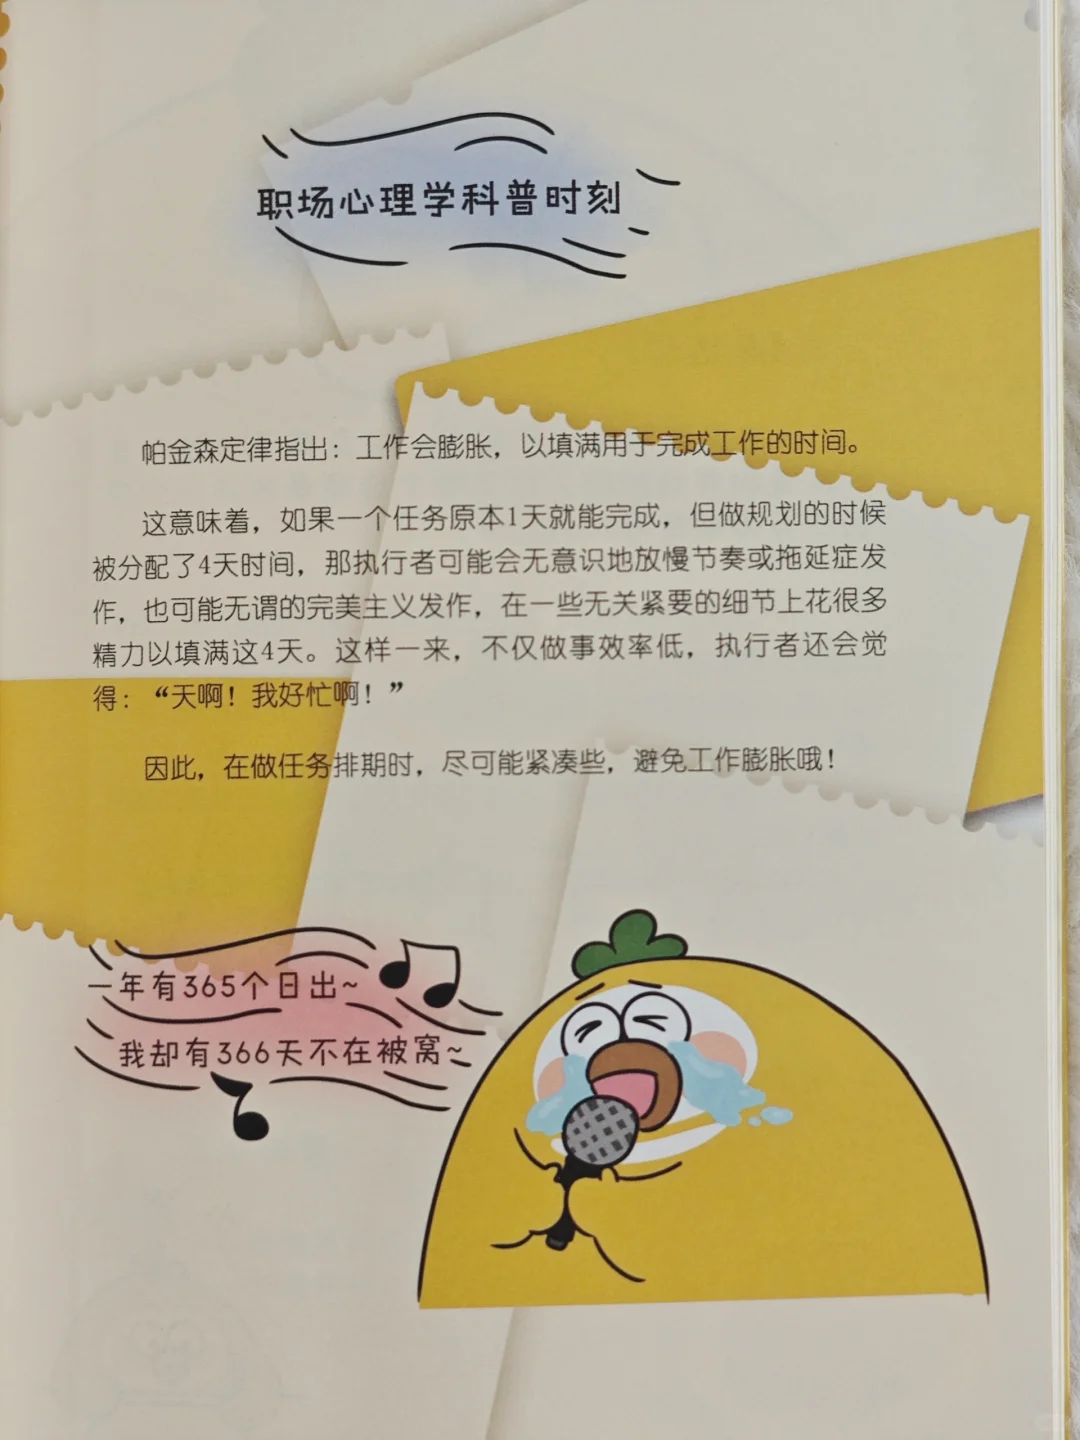 职场心理学科普时刻
帕金森定律指出：工作会膨胀，以填满用于完成工作的时间。
这意味着，如果一个任务原本1天就能完成，但做规划的时候
被分配了4天时间，那执行者可能会无意识地放慢节奏或拖延症发
作，也可能无谓的完美主义发作，在一些无关紧要的细节上花很多
精力以填满这4天。这样一来，不仅做事效率低，执行者还会觉
得：“天啊！我好忙啊！”
因此，在做任务排期时，尽可能紧凑些，避免工作膨胀哦！
一年有365个日出~
我却有366天不在被窝~